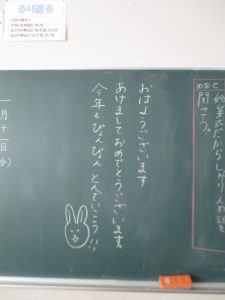 ふり返る
めあて
始業式だからしっかり人の話を
聞こう。
おはようございます
あけましておめでとうございます。
今年もぴょんぴょんとんでいこう!!
一月十一日
(水)